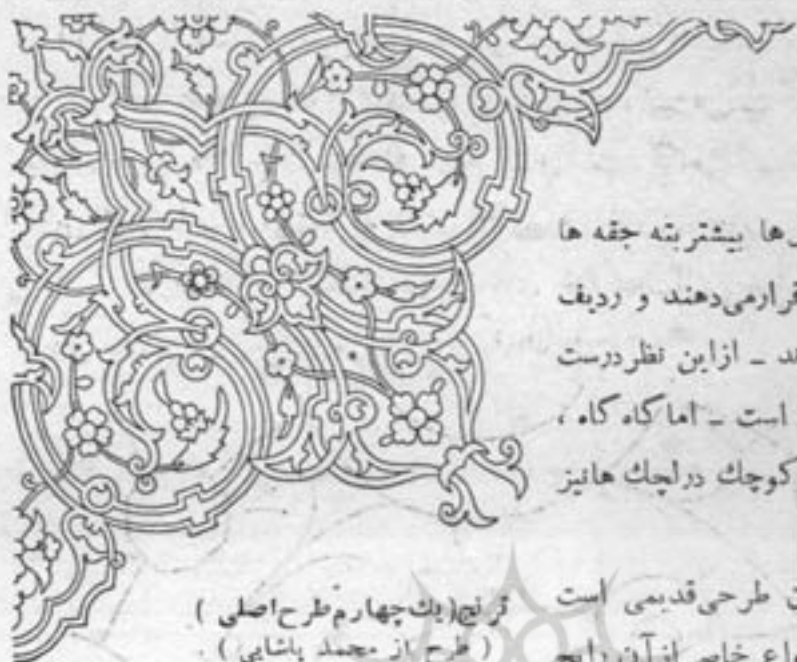 ها بیشتر بته جقه ها
قرارمی‌دهند و ردیف
ند ـ ازاین نظر درست
است ـ اما گاه گاه ،
کوچك درلچك هانیز
طرحی قدیمی است
خاصی ازآن رایج
ترنج(یك‌چهارم‌طرح‌اصلی )
( طرح از محمد پاشایی ) .